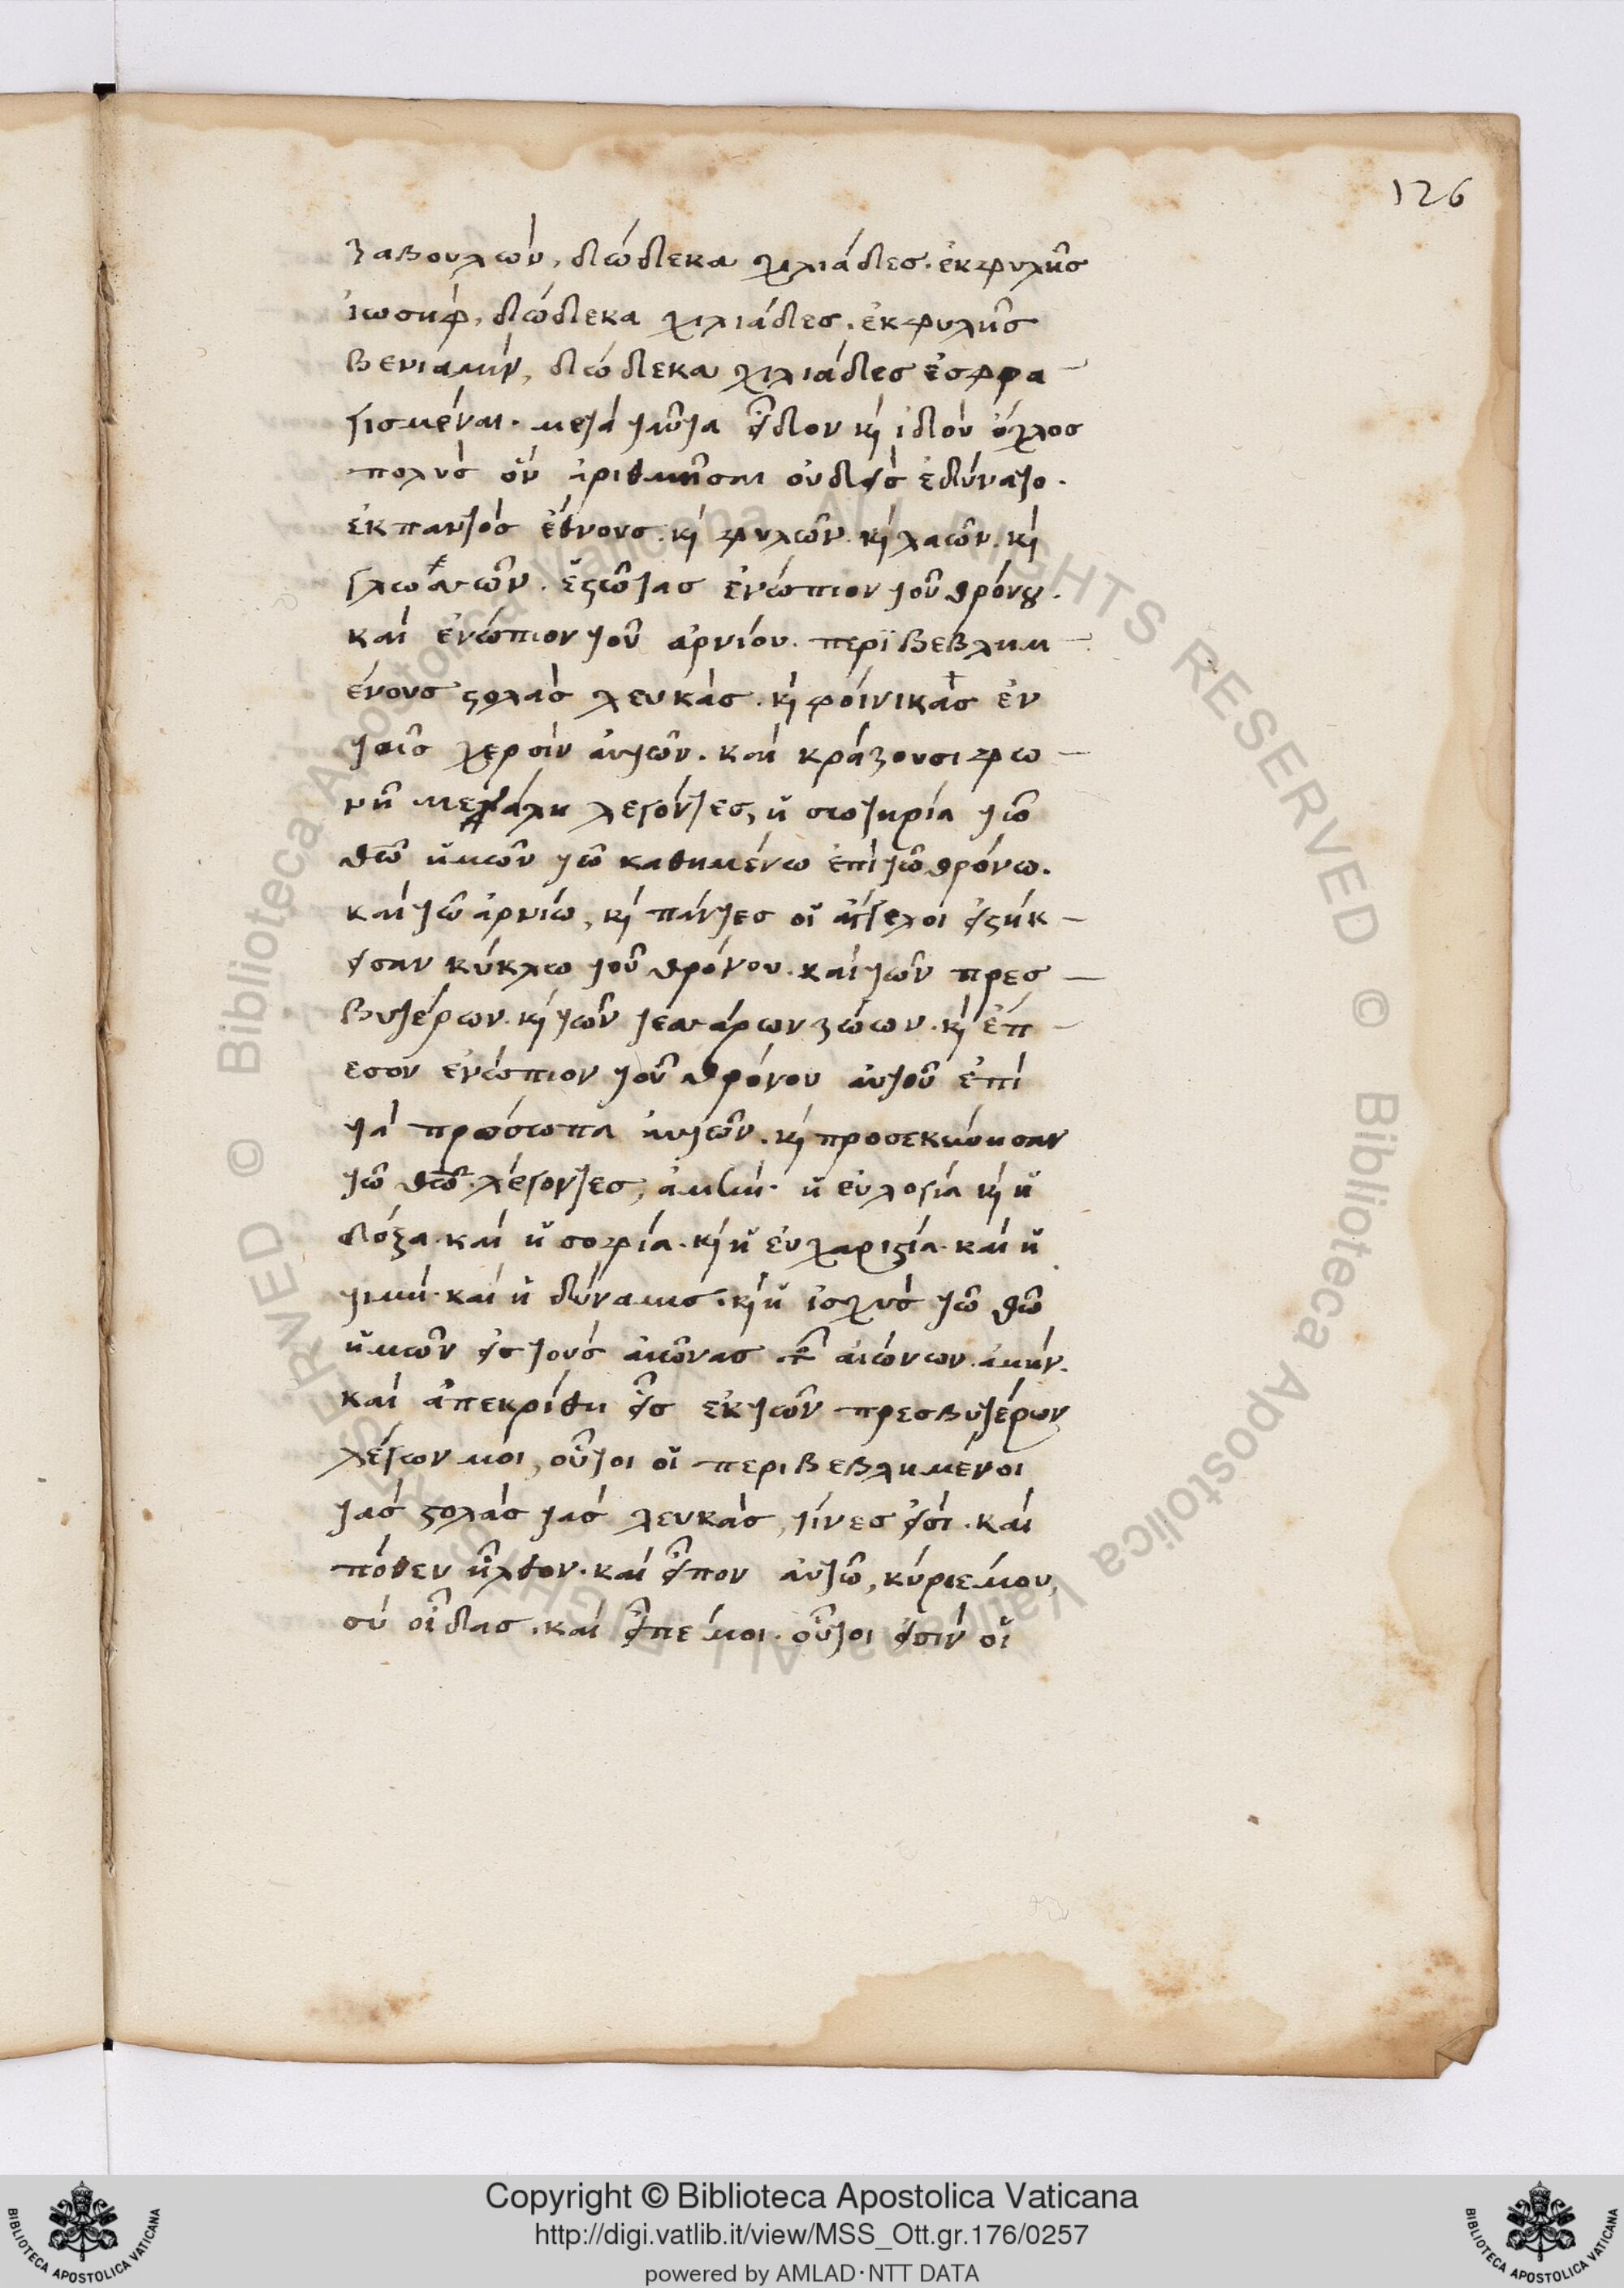 126
ζαβουλών, δώδεκα χιλιάδες. ἐκ φυλῆς
ἰωσηφ, δώδεκα χιλιάδες. ἐκ φυλῆς
βενιαμίν, δώδεκα χιλιάδες ἐσφρα
γισμέναι. μετὰ ταῦτα εἶδον κὶ ἰδοὺ ὄχλος
πολὺς ὃν ἀριθμῆσαι οὐδεὶς ἐδύνατο.
ἐκ παντὸς ἔθνους. κὶ φυλῶν. κὶ λαῶν. κὶ
γλωσσῶν. ἑστῶτας ἐνώπιον τοῦ θρόνου.
καὶ ἐνώπιον τοῦ ἀρνίου. περϊβεβλημ
ένους στολὰς λευκὰς. κὶ φοίνικας ἐν
ταῖς χερσὶν αὐτῶν. καὶ κράζουσι φω
νῆ μεγάλη λεγόντες, ἡ σωτηρία τῶ
θῶ ἡμῶν τῶ καθημένω ἐπὶ τῶ θρόνω.
καὶ τῶ ἀρνίω, κὶ πάντες οἱ ἄγγελοι εἱστήκ
εισαν κύκλω τοῦ θρόνου. καὶ τῶν πρεσ
βυτέρων. κὶ τῶν τεσσάρων ζώων. κὶ ἔπ
εσον ἐνώπιον τοῦ θρόνου αὐτοῦ ἐπὶ
τὰ πρώσωπα αὐτῶν. κὶ προσεκύνησαν
τῶ θῶ. λέγοντες, ἀμήν. ἡ εὐλογία κὶ ἡ
δόξα. καὶ ἡ σοφία. κὶ ἡ εὐχαριστία. καὶ ἡ
τιμή. καὶ ἡ δύναμις. κὶ ἡ ἰσχὺς τῶ θῶ
ἡμῶν εἰς τοὺς αἰῶνας τῶν αἰώνων. ἀμήν.
καὶ ἀπεκρίθη εἷς ἐκ τῶν πρεσβυτέρων
λέγων μοι, οὗτοι οἱ περιβεβλημένοι
τὰς στολὰς τὰς λευκὰς, τίνες εἰσὶ. καὶ
πόθεν ἦλθον. καὶ εἶπον αὐτῶ, κύριε μου,
σὺ οἶδας. καὶ εἶπε μοι. οὗτοι εἰσὶν οἱ
Copyright © Biblioteca Apostolica Vaticana
http://digi.vatlib.it/view/MSS_Ott.gr.176/0257
powered by AMLAD·NTT DATA